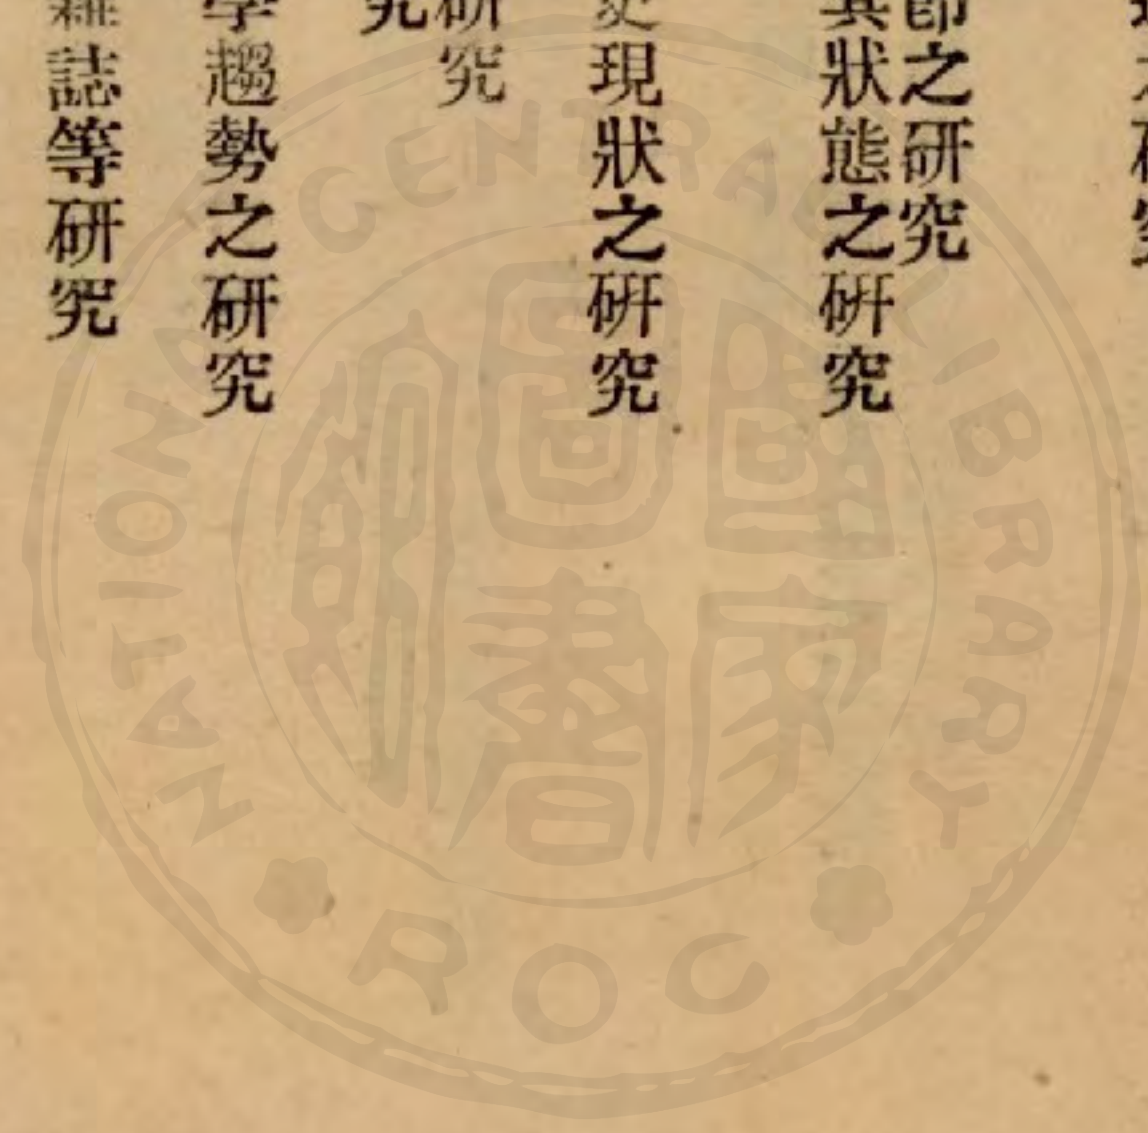 之研究
節之研究
其狀態之研究
現狀之研究
研究
究
學趨勢之研究
雜誌等研究
NATIONAL CENTRAL LIBRARY
ROC
國家圖書館